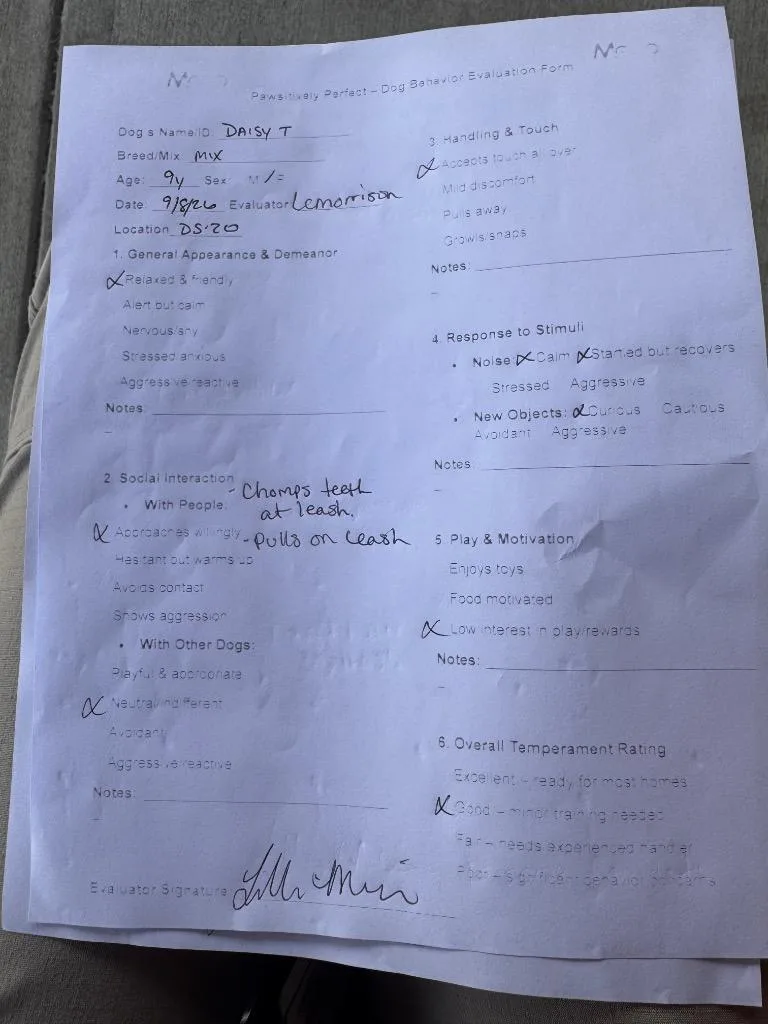 Pawsitively Perfect – Dog Behavior Evaluation Form
Dog s Name/ID: DAISY T
Breed/Mix MIX
Age: 9y Sex: M /
Date: 9/8/26 Evaluator Lemorrison
Location DS-20
1. General Appearance & Demeanor
Relaxed & friendly
Alert but calm
Nervous/shy
Stressed anxious
Aggressive/reactive
Notes:
2 Social Interaction
• With People: - Chomps teeth
at leash.
Approaches willingly - pulls on leash
Hesitant but warms up
Avoids contact
Shows aggression
• With Other Dogs:
Playful & appropriate
Neutral/indifferent
Avoidant
Aggressive/reactive
Notes:
Evaluator Signature:
3. Handling & Touch
Accepts touch all over
Mild discomfort
Pulls away
Growls/snaps
Notes:
4. Response to Stimuli
• Noise: Calm Startled but recovers
Stressed Aggressive
• New Objects: Curious Cautious
Avoidant Aggressive
Notes:
5. Play & Motivation
Enjoys toys
Food motivated
Low interest in play/rewards
Notes:
6. Overall Temperament Rating
Excellent – ready for most homes
Good – minor training needed
Fair – needs experienced handler
Poor – significant behavior concerns